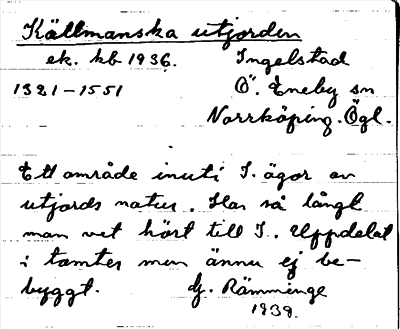 Källmanska utjorden
ek. kb 1936. Ingelstad
1321-1551 Ö. Eneby sn
Norrköping. Ögl.
Ett område inuti I. ägor av
utjords natur. Har så långt
man vet hört till I. Uppdelat
i tomter men ännu ej be-
byggt. Hj. Rämminge
1939.